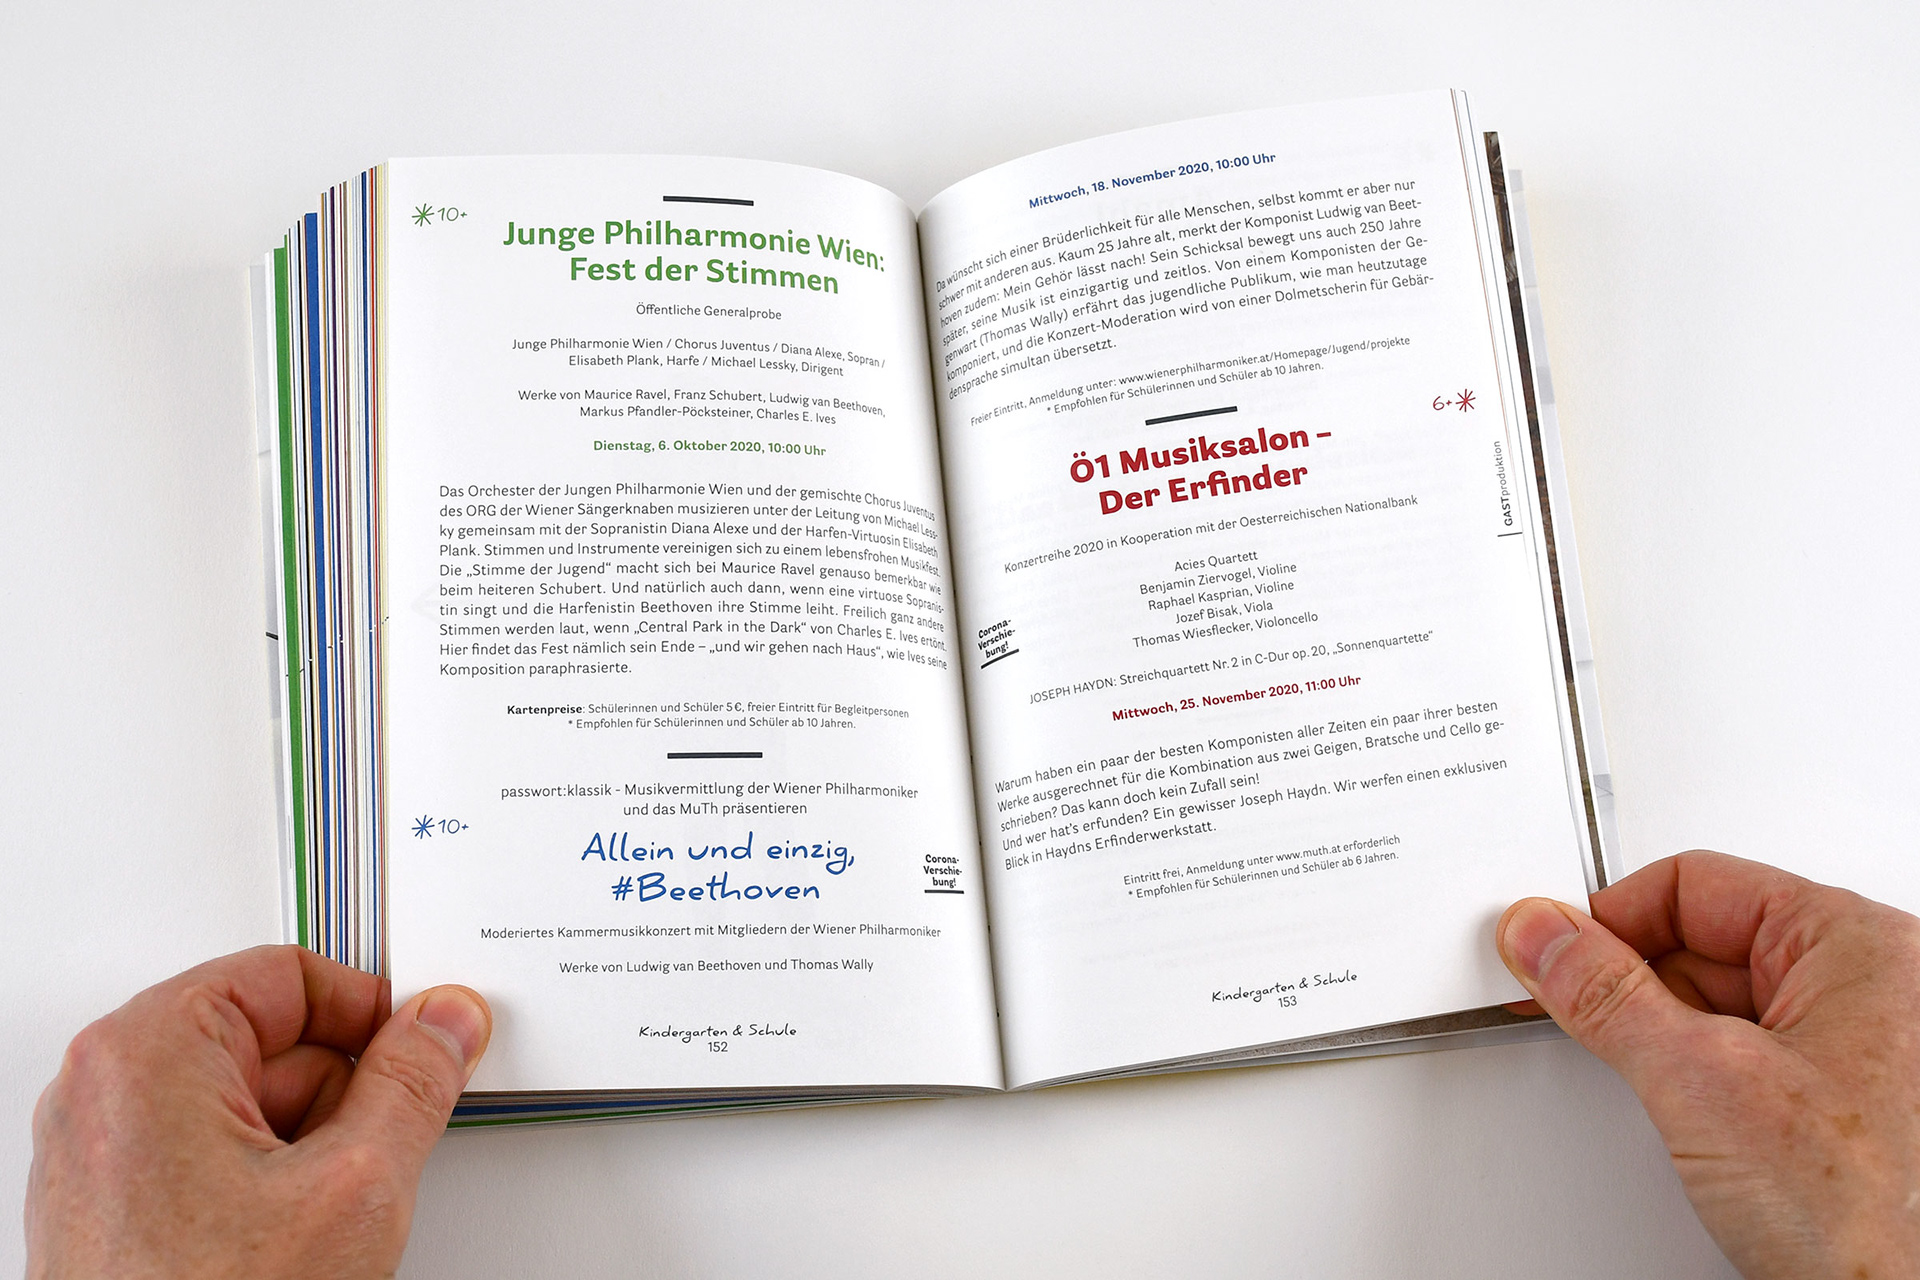 *10+
Junge Philharmonie Wien:
Fest der Stimmen
Öffentliche Generalprobe
Junge Philharmonie Wien / Chorus Juventus / Diana Alexe, Sopran /
Elisabeth Plank, Harfe / Michael Lessky, Dirigent
Werke von Maurice Ravel, Franz Schubert, Ludwig van Beethoven,
Markus Pfandler-Pöcksteiner, Charles E. Ives
Dienstag, 6. Oktober 2020, 10:00 Uhr
Das Orchester der Jungen Philharmonie Wien und der gemischte Chorus Juventus
des ORG der Wiener Sängerknaben musizieren unter der Leitung von Michael Less-
ky gemeinsam mit der Sopranistin Diana Alexe und der Harfen-Virtuosin Elisabeth
Plank. Stimmen und Instrumente vereinigen sich zu einem lebensfrohen Musikfest.
Die „Stimme der Jugend“ macht sich bei Maurice Ravel genauso bemerkbar wie
beim heiteren Schubert. Und natürlich auch dann, wenn eine virtuose Sopranis-
tin singt und die Harfenistin Beethoven ihre Stimme leiht. Freilich ganz andere
Stimmen werden laut, wenn „Central Park in the Dark“ von Charles E. Ives ertönt.
Hier findet das Fest nämlich sein Ende – „und wir gehen nach Haus“, wie Ives seine
Komposition paraphrasierte.
Kartenpreise: Schülerinnen und Schüler 5 €, freier Eintritt für Begleitpersonen
* Empfohlen für Schülerinnen und Schüler ab 10 Jahren.
passwort:klassik - Musikvermittlung der Wiener Philharmoniker
und das MuTh präsentieren
*10+
Allein und einzig,
#Beethoven
Corona-
Verschie-
bung!
Moderiertes Kammermusikkonzert mit Mitgliedern der Wiener Philharmoniker
Werke von Ludwig van Beethoven und Thomas Wally
Kindergarten & Schule
152
Mittwoch, 18. November 2020, 10:00 Uhr
Da wünscht sich einer Brüderlichkeit für alle Menschen, selbst kommt er aber nur
schwer mit anderen aus. Kaum 25 Jahre alt, merkt der Komponist Ludwig van Beet-
hoven zudem: Mein Gehör lässt nach! Sein Schicksal bewegt uns auch 250 Jahre
später, seine Musik ist einzigartig und zeitlos. Von einem Komponisten der Ge-
genwart (Thomas Wally) erfährt das jugendliche Publikum, wie man heutzutage
komponiert, und die Konzert-Moderation wird von einer Dolmetscherin für Gebär-
densprache simultan übersetzt.
Freier Eintritt, Anmeldung unter: www.wienerphilharmoniker.at/Homepage/Jugend/projekte
* Empfohlen für Schülerinnen und Schüler ab 10 Jahren.
6+*
Ö1 Musiksalon –
Der Erfinder
GASTproduktion
Konzertreihe 2020 in Kooperation mit der Oesterreichischen Nationalbank
Acies Quartett
Benjamin Ziervogel, Violine
Raphael Kasprian, Violine
Jozef Bisak, Viola
Thomas Wiesflecker, Violoncello
Corona-
Verschie-
bung!
JOSEPH HAYDN: Streichquartett Nr. 2 in C-Dur op. 20, „Sonnenquartette“
Mittwoch, 25. November 2020, 11:00 Uhr
Warum haben ein paar der besten Komponisten aller Zeiten ein paar ihrer besten
Werke ausgerechnet für die Kombination aus zwei Geigen, Bratsche und Cello ge-
schrieben? Das kann doch kein Zufall sein!
Und wer hat’s erfunden? Ein gewisser Joseph Haydn. Wir werfen einen exklusiven
Blick in Haydns Erfinderwerkstatt.
Eintritt frei, Anmeldung unter www.muth.at erforderlich
* Empfohlen für Schülerinnen und Schüler ab 6 Jahren.
Kindergarten & Schule
153